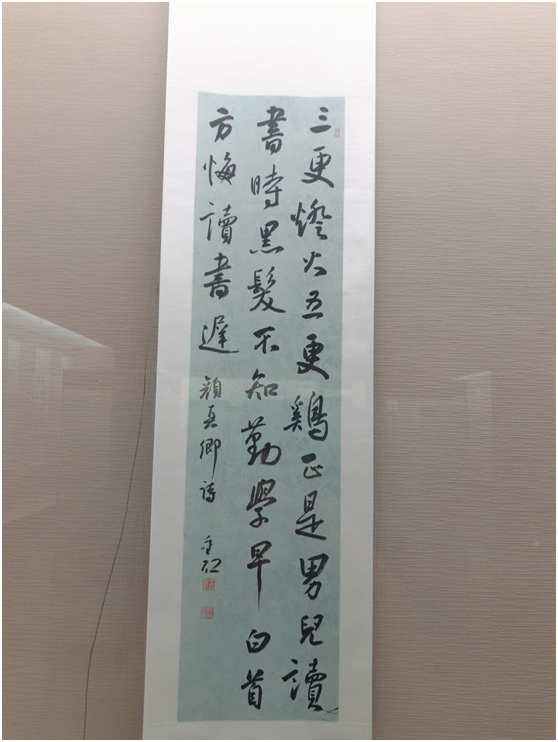 三更燈火五更鷄正是男兒讀
書時黑髮不知勤學早白首
方悔讀書遲 顔真卿詩